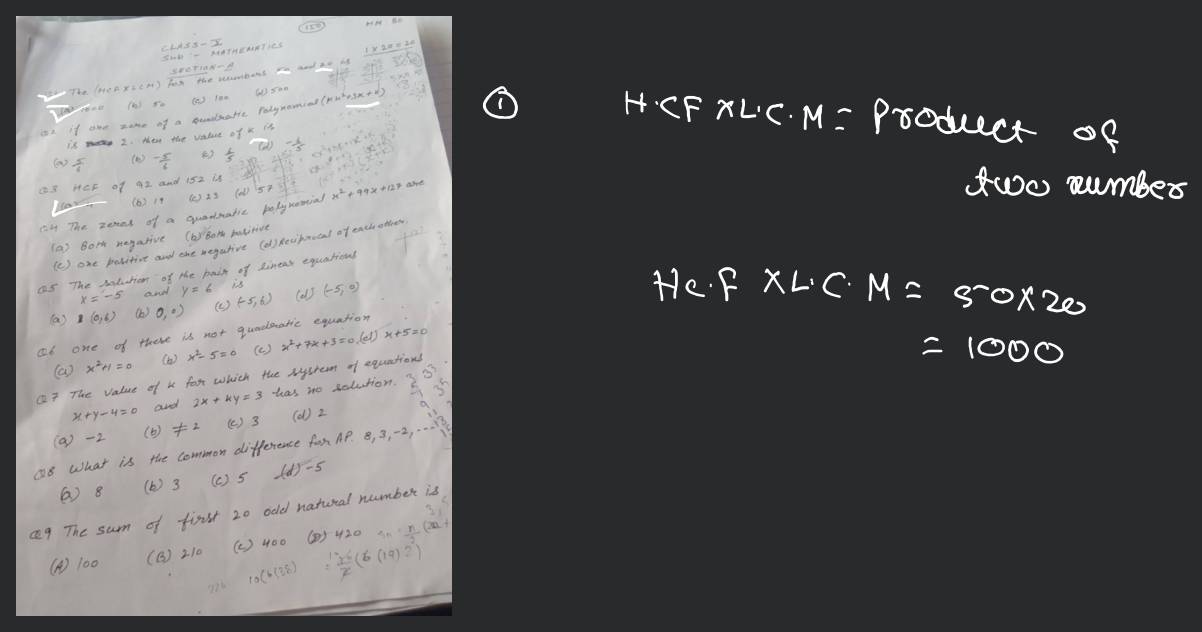 150
MM: 80
CLASS-X
Sub :- MATHEMATICS
1 X 20 = 20
SECTION-A
The (HCF X LCM) for the numbers 50 and 20 is
(a) 1000 (b) 50 (c) 100 (d) 500
Q2 if one zero of a quadratic Polynomial (kx²+3x+k)
is 2. then the value of K is
(a) 5/6 (b) -5/6 c) 6/5 (d) -6/5
Q3 HCF of 92 and 152 is
(b) 19 (c) 23 (d) 57
Q4 The zeros of a quadratic polynomial x² + 99x + 127 are
(a) Both negative (b) Both positive
(c) one positive and one negative (d) Reciprocal of each other.
Q5 The solution of the pair of linear equations
x = -5 and y = 6 is
(a) (0,6) (b) 0,0) (c) (-5,6) (d) (-5,0)
Q6 one of these is not quadratic equation
(a) x²+1=0 (b) x²-5=0 (c) x²+7x+3=0, (d) x+5=0
Q7 The value of k for which the system of equations
x+y-4=0 and 2x+ky=3 has no solution.
(a) -2 (b) ≠ 2 (c) 3 (d) 2
Q8 what is the common difference for AP. 8, 3, -2, ----
(a) 8 (b) 3 (c) 5 (d) -5
Q9 The sum of first 20 odd natural number is
(A) 100 (B) 210 (c) 400 (D) 420
①
H.CF X L.C.M = Product of
two number
Hc.F X L.C.M = 50X20
= 1000